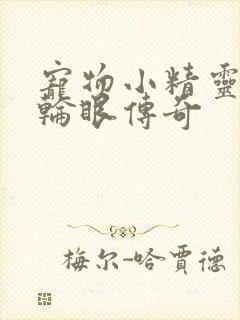 寵物小精靈
輪眼傳奇
梅尔-哈賈德